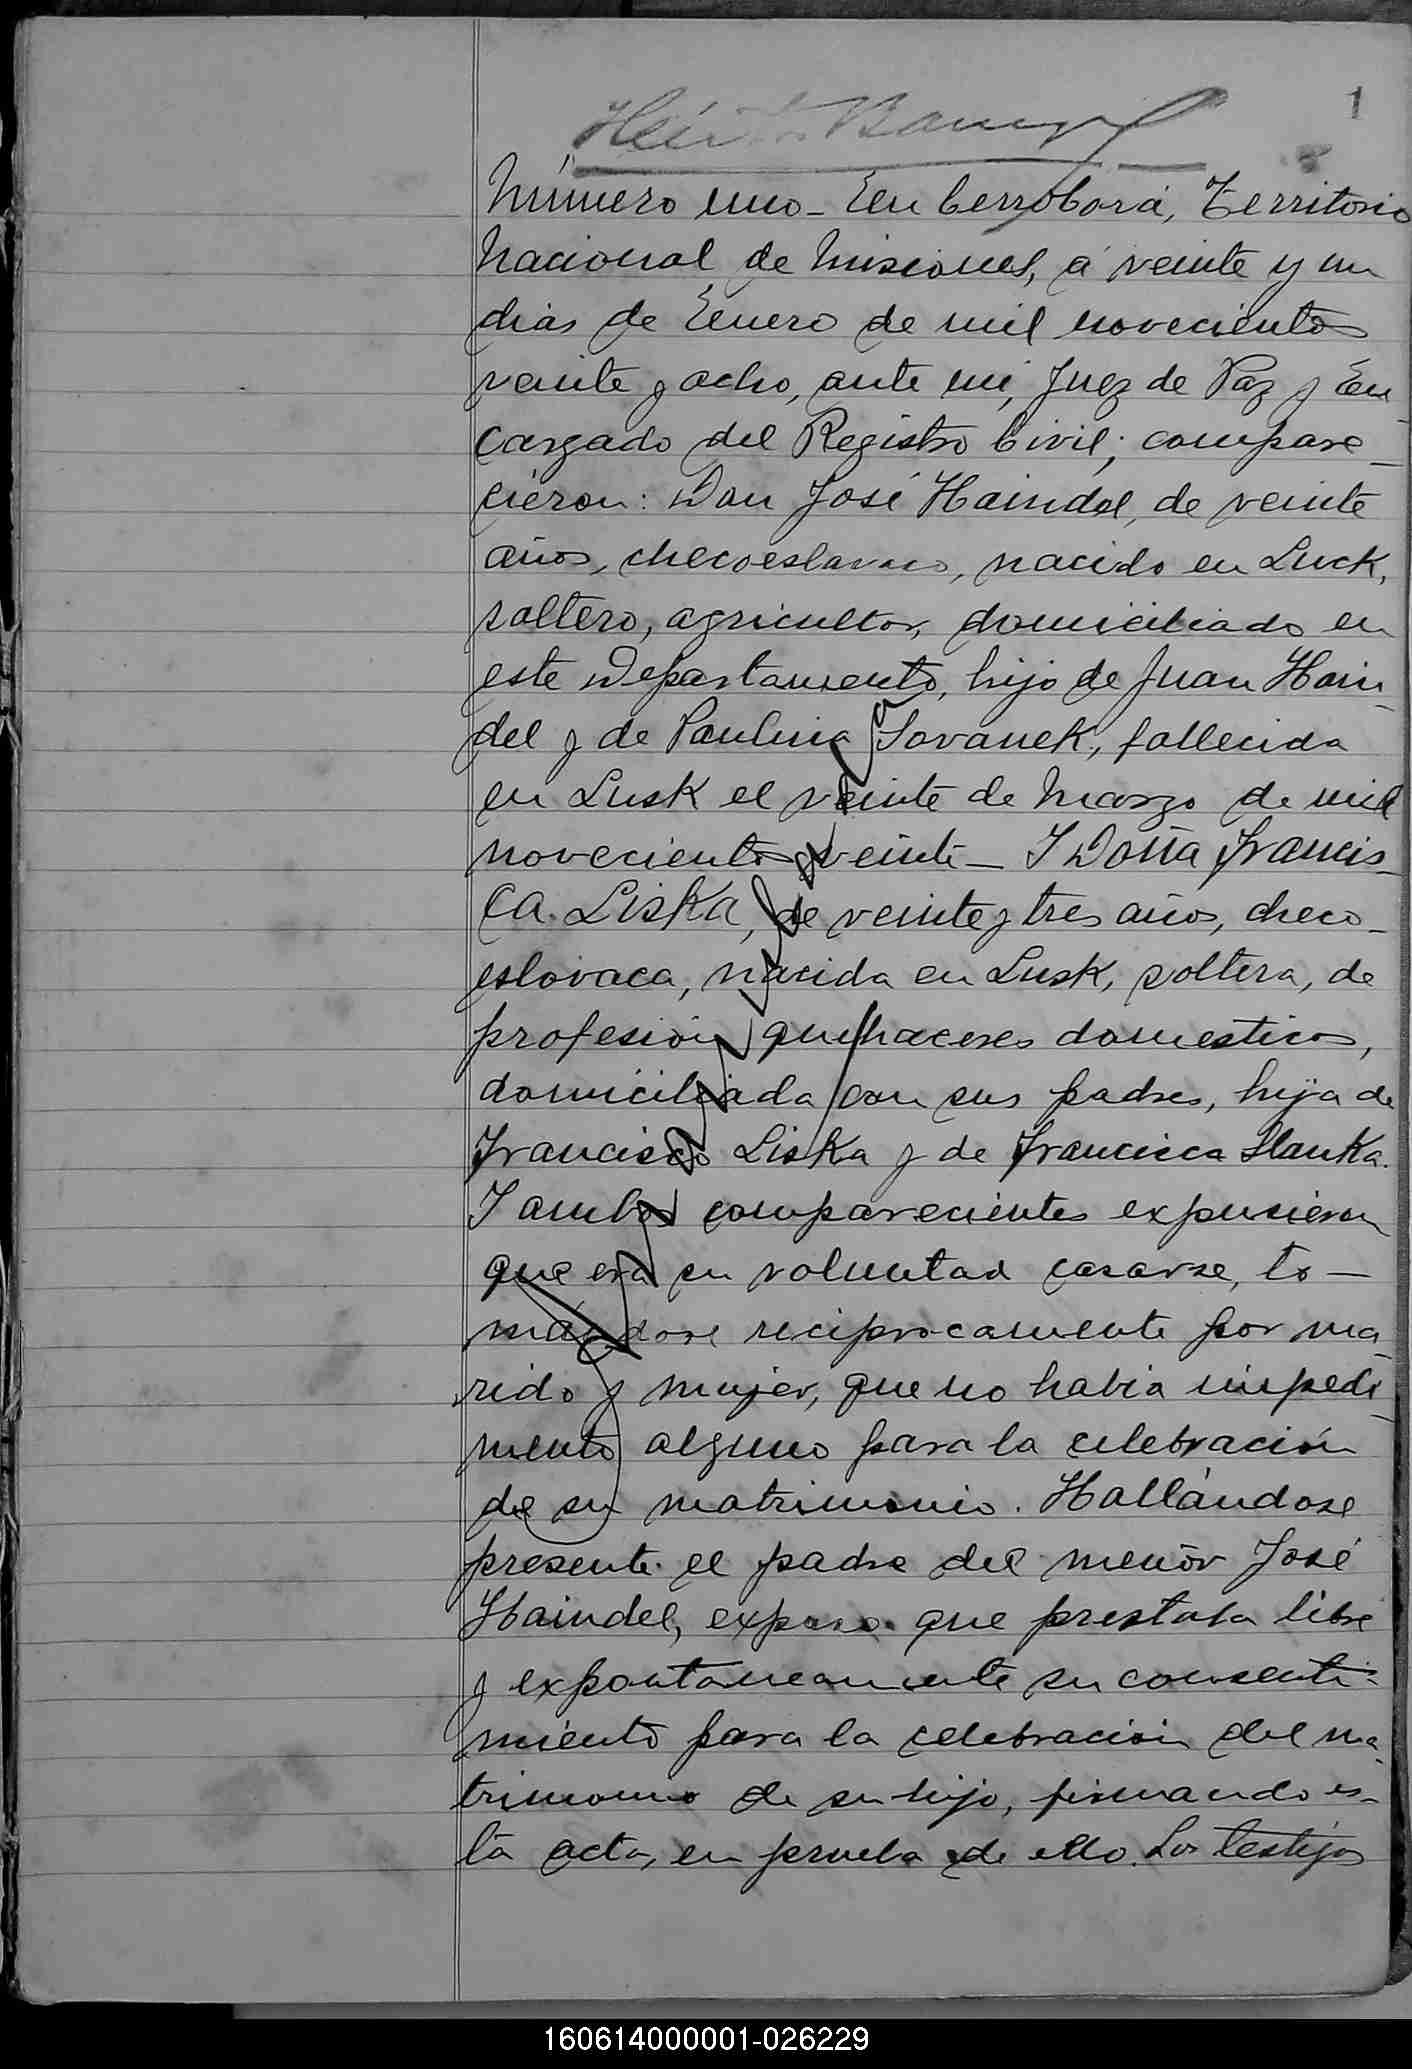 1
Número uno_ En Cerro Corá, Territorio
Nacional de Misiones, á veinte y un
dias de Enero de mil novecientos
veinte y ocho, ante mí, Juez de Paz y En_
cargado del Registro Civil; compare_
cieron: Don José Haindel, de veinte
años, checoeslavaco, nacido en Luck,
soltero, agricultor, domiciliado en
este Departamento, hijo de Juan Hain_
del y de Paulina Sovanek, fallecida
en Lusk el veinte de Marzo de mil
novecientos veinte_ Y Doña Francis_
ca Liska, de veinte y tres años, checo_
eslovaca, nacida en Lusk, soltera, de
profesión quehaceres domesticos,
domiciliada con sus padres, hija de
Francisco Liska y de Francisca Slanka.
Y ambos comparecientes expusieron
que era su voluntad casarse, to_
mándose reciprocamente por ma_
rido y mujer, que no habia impedi_
mento alguno para la celebración
de su matrimonio. Hallándose
presente el padre del menór José
Haindel, expuso que prestaba libre
y expontaneamente su consenti_
miento para la celebración del ma_
trimonio de su hijo, firmando es_
ta acta, en prueba de ello. Los testigos
160614000001-026229